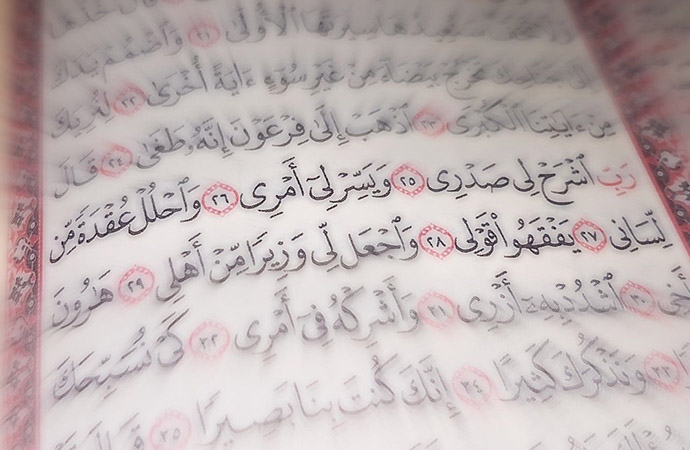 سِيرَتَهَا ٱلْأُولَىٰ ٢١ وَٱضْمُمْ يَدَكَ
إِلَىٰ جَنَاحِكَ تَخْرُجْ بَيْضَآءَ مِنْ غَيْرِ سُوٓءٍ ءَايَةً أُخْرَىٰ ٢٢ لِنُرِيَكَ
مِنْ ءَايَـٰتِنَا ٱلْكُبْرَى ٢٣ ٱذْهَبْ إِلَىٰ فِرْعَوْنَ إِنَّهُۥ طَغَىٰ ٢٤ قَالَ
رَبِّ ٱشْرَحْ لِى صَدْرِى ٢٥ وَيَسِّرْ لِىٓ أَمْرِى ٢٦ وَٱحْلُلْ عُقْدَةً مِّن
لِّسَانِى ٢٧ يَفْقَهُوا۟ قَوْلِى ٢٨ وَٱجْعَل لِّى وَزِيرًا مِّنْ أَهْلِى ٢٩ هَـٰرُونَ
أَخِى ٣٠ ٱشْدُدْ بِهِۦٓ أَزْرِى ٣١ وَأَشْرِكْهُ فِىٓ أَمْرِى ٣٢ كَىْ نُسَبِّحَكَ
٣٣ وَنَذْكُرَكَ كَثِيرًا ٣٤ إِنَّكَ كُنتَ بِنَا بَصِيرًا ٣٥ قَالَ